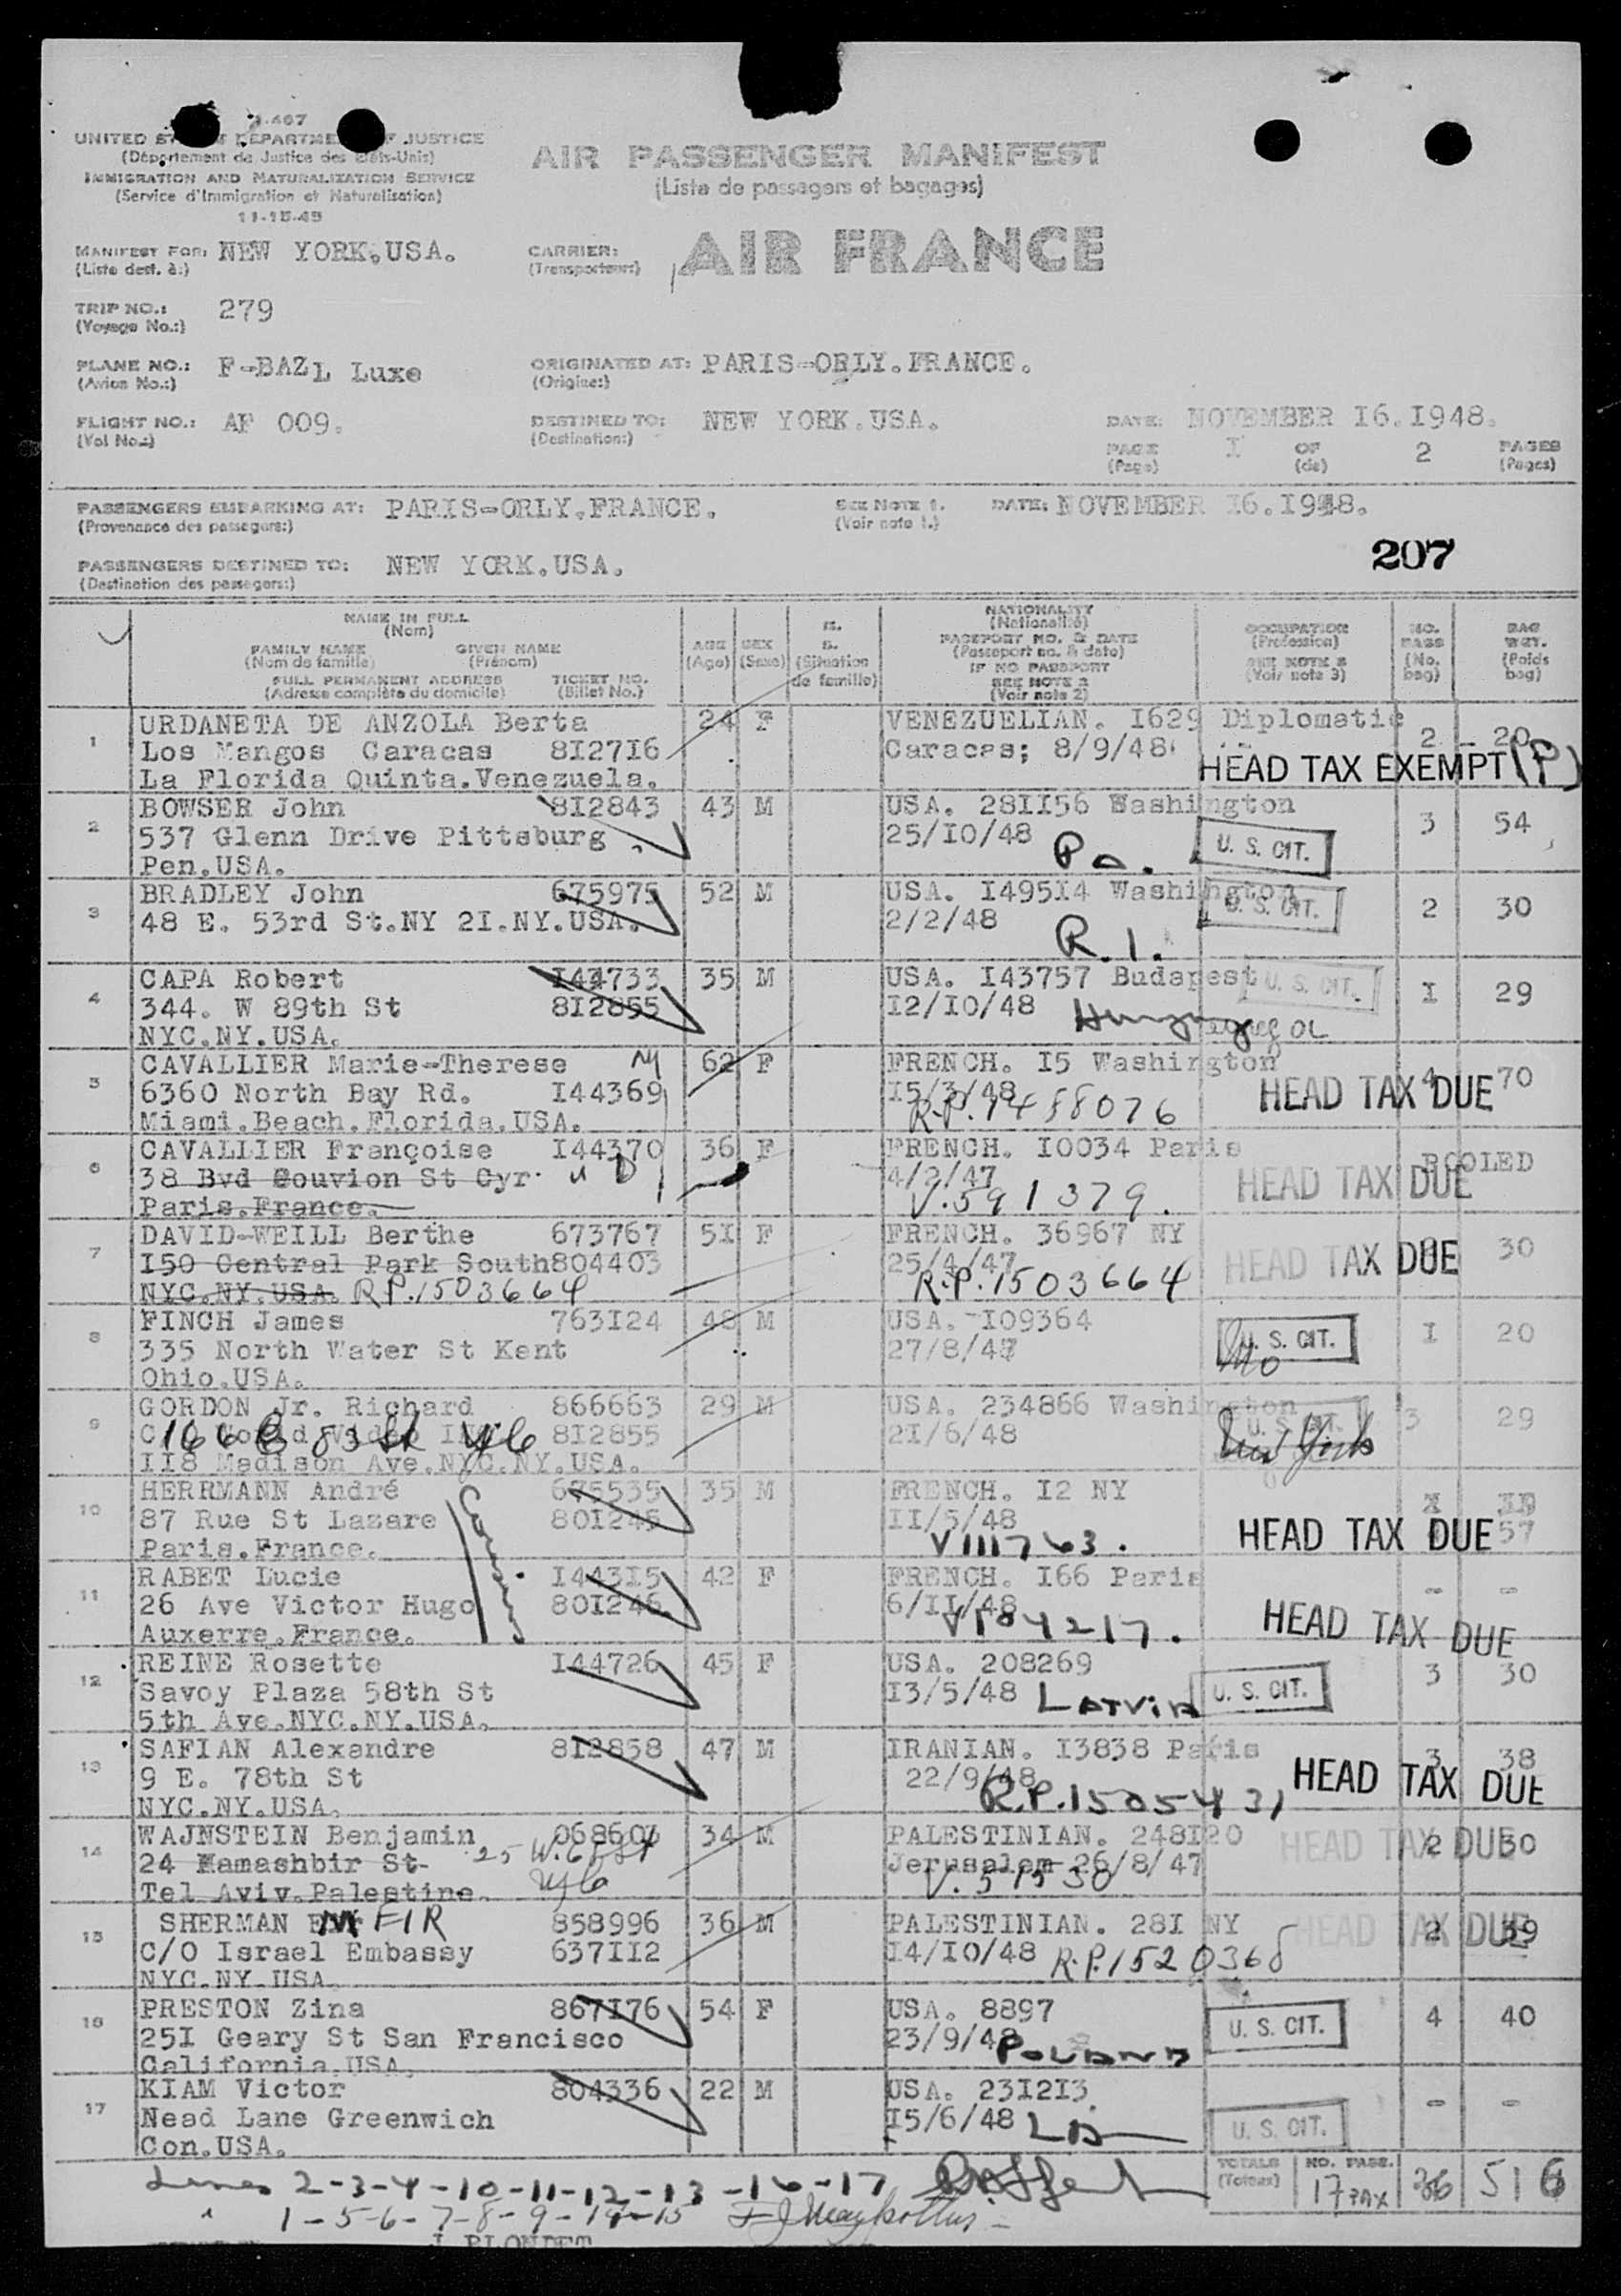 I-407
UNITED STATES DEPARTMENT OF JUSTICE
(Département de Justice des Etats-Unis)
IMMIGRATION AND NATURALIZATION SERVICE
(Service d'Immigration et Naturalisation)
11-15-45
AIR PASSENGER MANIFEST
(Liste de passagers et bagages)
MANIFEST FOR: NEW YORK.USA.
(Liste dest. à:)
CARRIER: AIR FRANCE
(Transporteur:)
TRIP NO.: 279
(Voyage No.:)
PLANE NO.: F-BAZL Luxe
(Avion No.:)
ORIGINATED AT: PARIS-ORLY.FRANCE.
(Origine:)
FLIGHT NO.: AF 009.
(Vol No.:)
DESTINED TO: NEW YORK.USA.
(Destination:)
DATE: NOVEMBER I6.I948.
PAGE I OF 2 PAGES
(Page) (de) (Pages)
PASSENGERS EMBARKING AT: PARIS-ORLY.FRANCE.
(Provenance des passagers:)
SEE NOTE 1.
(Voir note 1.)
DATE: NOVEMBER I6.I948.
207
PASSENGERS DESTINED TO: NEW YORK.USA.
(Destination des passagers:)
NAME IN FULL
(Nom)
FAMILY NAME GIVEN NAME
(Nom de famille) (Prénom)
FULL PERMANENT ADDRESS TICKET NO.
(Adresse complète du domicile) (Billet No.)
AGE
(Age)
SEX
(Sexe)
M.
S.
(Situation
de famille)
NATIONALITY
(Nationalité)
PASSPORT NO. & DATE
(Passeport no. & date)
IF NO PASSPORT
SEE NOTE 2
(Voir note 2)
OCCUPATION
(Profession)
SEE NOTE 3
(Voir note 3)
NO.
BAGS
(No.
bag)
BAG
WGT.
(Poids
bag)
1 URDANETA DE ANZOLA Berta 24 F VENEZUELIAN. I629 Diplomatic
Los Mangos Caracas 8I27I6 Caracas; 8/9/48 2 - 20
La Florida Quinta.Venezuela. HEAD TAX EXEMPT (P)
2 BOWSER John 8I2843 43 M USA. 28II56 Washington 3 54
537 Glenn Drive Pittsburg 25/I0/48 Pa. U. S. CIT.
Pen.USA.
3 BRADLEY John 675975 52 M USA. I495I4 Washington 2 30
48 E. 53rd St.NY 2I.NY.USA. 2/2/48 R.I. U. S. CIT.
4 CAPA Robert I44733 35 M USA. I43757 Budapest U. S. CIT. I 29
344. W 89th St 8I2855 I2/I0/48 Hungary
NYC.NY.USA.
5 CAVALLIER Marie-Therese NY 62 F FRENCH. I5 Washington
6360 North Bay Rd. I44369 I5/3/48 HEAD TAX DUE 4 70
Miami.Beach.Florida.USA. R.P. 1488076
6 CAVALLIER Françoise I44370 36 F FRENCH. I0034 Paris POOLED
38 Bvd Gouvion St Cyr 4/2/47 HEAD TAX DUE
Paris.France. V.591379.
7 DAVID-WEILL Berthe 673767 5I F FRENCH. 36967 NY 30
I50 Central Park South 804403 25/4/47 HEAD TAX DUE
NYC.NY.USA. R.P.1503664 R.P.1503664
8 FINCH James 763I24 48 M USA. I09364 U. S. CIT. I 20
335 North Water St Kent 27/8/47 Mo
Ohio.USA.
9 GORDON Jr. Richard 866663 29 M USA. 234866 Washington 3 29
166 E 83 St NYC 8I2855 2I/6/48 U. S. CIT. New York
II8 Madison Ave.NYC.NY.USA.
10 HERRMANN André 675535 35 M FRENCH. I2 NY
87 Rue St Lazare 80I245 II/5/48 HEAD TAX DUE 57
Paris.France. V111763.
11 RABET Lucie I443I5 42 F FRENCH. I66 Paris - -
26 Ave Victor Hugo 80I246 6/II/48 HEAD TAX DUE
Auxerre.France. V184217.
12 REINE Rosette I44726 45 F USA. 208269 3 30
Savoy Plaza 58th St I3/5/48 LATVIA U. S. CIT.
5th Ave.NYC.NY.USA.
13 SAFIAN Alexandre 8I2858 47 M IRANIAN. I3838 Paris 3 38
9 E. 78th St 22/9/48 HEAD TAX DUE
NYC.NY.USA. R.P.1505431
14 WAJNSTEIN Benjamin 068607 34 M PALESTINIAN. 248I20 HEAD TAX DUE 2 30
24 Hamashbir St. 25 W. 68 St Jerusalem 26/8/47
Tel Aviv.Palestine. NYC V.51530
15 SHERMAN MEIR 858996 36 M PALESTINIAN. 28I NY HEAD TAX DUE 2 39
C/O Israel Embassy 637II2 I4/I0/48 R.P.1520368
NYC.NY.USA.
16 PRESTON Zina 867I76 54 F USA. 8897 4 40
25I Geary St San Francisco 23/9/48 POLAND U. S. CIT.
California.USA.
17 KIAM Victor 804336 22 M USA. 23I2I3. - -
Nead Lane Greenwich I5/6/48 LA U. S. CIT.
Con.USA.
TOTALS NO. PASS.
(Totaux) 17 PAX 36 516
Lines 2-3-4-10-11-12-13-16-17
" 1-5-6-7-8-9-14-15
J PLONDET